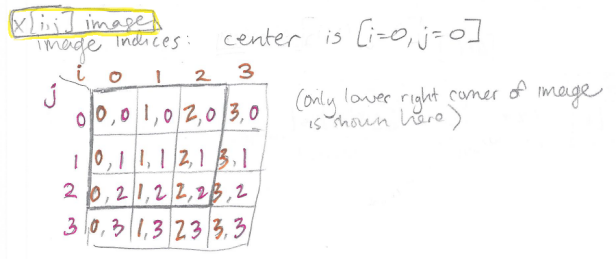 x[i,j] image
image indices: center is [i=0, j=0]
i 0 1 2 3
j
0 0,0 1,0 2,0 3,0
(only lower right corner of image
is shown here)
1 0,1 1,1 2,1 3,1
2 0,2 1,2 2,2 3,2
3 0,3 1,3 23 3,3